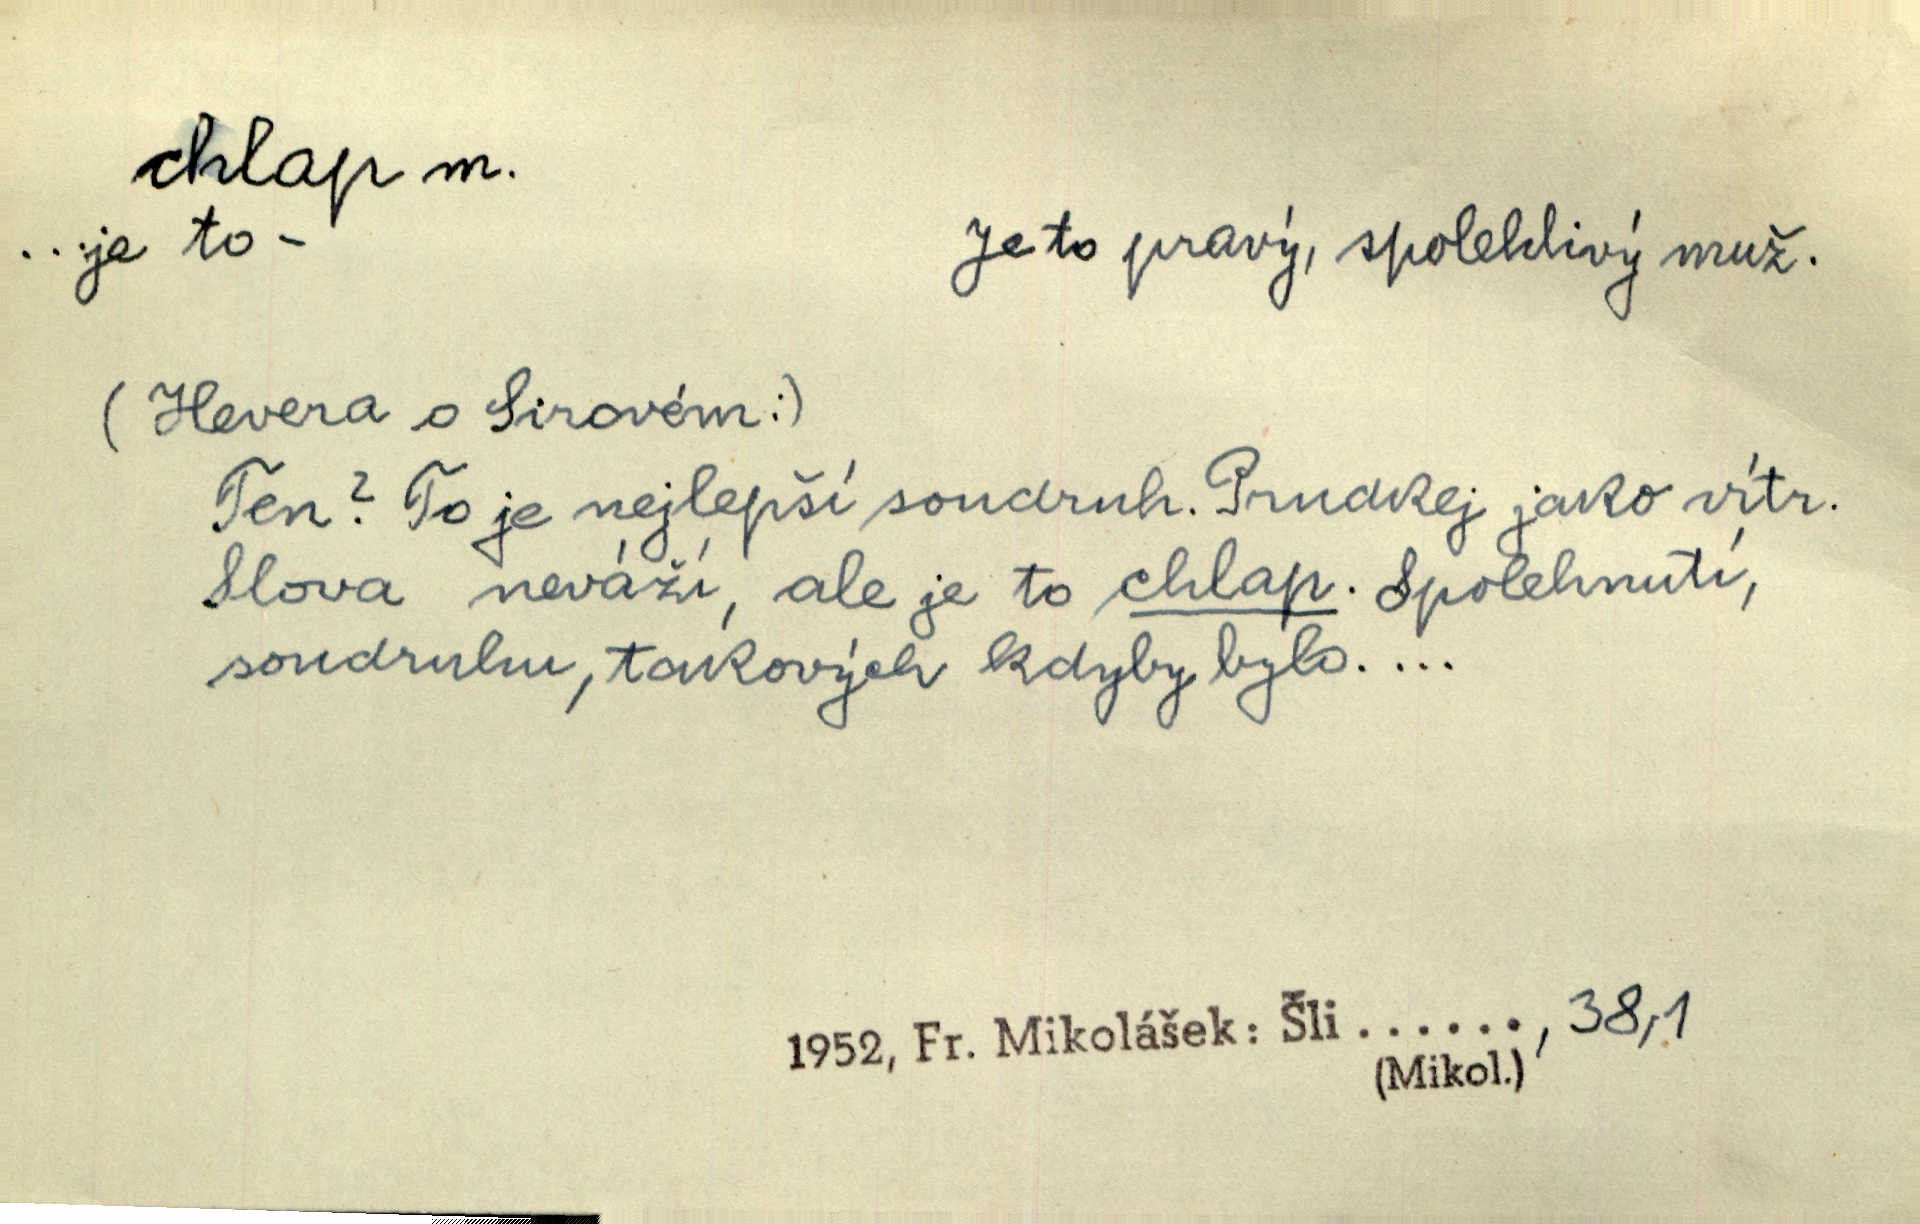 chlap m.
...je to –
Je to pravý, spolehlivý muž.
(Hevera o Sirovém:)
Ten? To je nejlepší soudruh. Prudkej jako vítr.
Slova neváží, ale je to chlap. Spolehnutí,
soudruhu, takových kdyby bylo....
1952, Fr. Mikolášek: Šli ......, 38,1
(Mikol.)